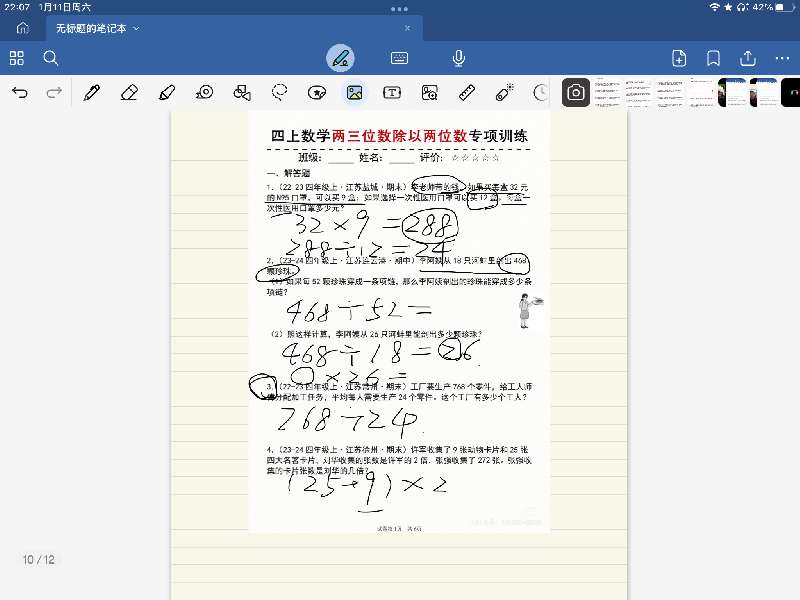 22:07 1月11日周六
42%
无标题的笔记本
四上数学两三位数除以两位数专项训练
班级：_____ 姓名：_____ 评价：☆☆☆☆☆
一．解答题
1.（22-23四年级上·江苏盐城·期末）李老师带的钱，如果买每盒32元
的N95口罩，可以买9盒；如果选择一次性医用口罩可以买12盒，每盒一
次性医用口罩多少元？
32×9=288
288÷12=24
2.（23-24四年级上·江苏连云港·期中）李阿姨从18只河蚌里剖出468
颗珍珠。
（1）如果每52颗珍珠穿成一条项链，那么李阿姨剖出的珍珠能穿成多少条
项链？
468÷52=
（2）照这样计算，李阿姨从26只河蚌里能剖出多少颗珍珠？
468÷18=26
×26=
3.（22-23四年级上·江苏常州·期末）工厂要生产768个零件，给工人师
傅分配加工任务，平均每人需要生产24个零件。这个工厂有多少个工人？
768÷24
4.（23-24四年级上·江苏徐州·期末）许军收集了9张动物卡片和25张
四大名著卡片，刘华收集的张数是许军的2倍，张强收集了272张。张强收
集的卡片张数是刘华的几倍？
(25+9)×2
试卷第1页，共6页
10/12